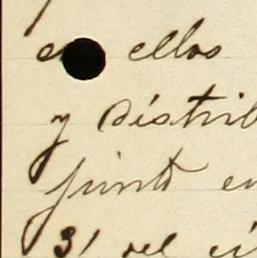 ellos
y distrib
junto en
31 del